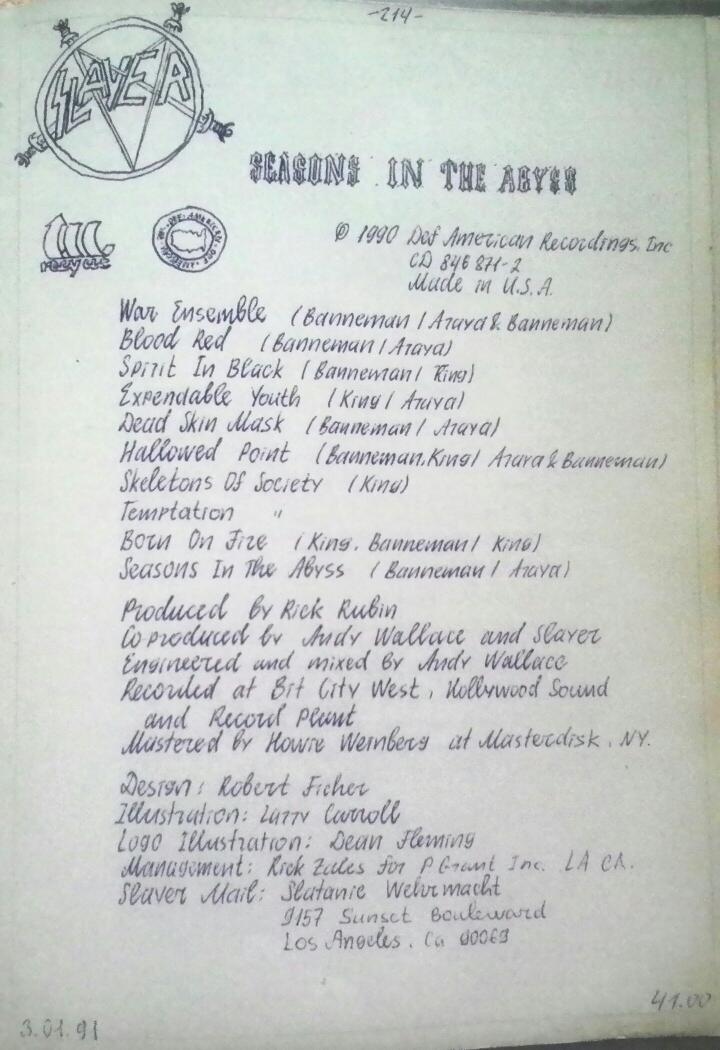 -214-
SLAYER
SEASONS IN THE ABYSS
℗ 1990 Def American Recordings, Inc
CD 846 871-2
Made in U.S.A.
War Ensemble (Banneman / Araya & Banneman)
Blood Red (Banneman / Araya)
Spirit In Black (Banneman / King)
Expendable Youth (King / Araya)
Dead Skin Mask (Banneman / Araya)
Hallowed Point (Banneman, King / Araya & Banneman)
Skeletons Of Society (King)
Temptation "
Born On Fire (King, Banneman / King)
Seasons In The Abyss (Banneman / Araya)
Produced by Rick Rubin
Co produced by Andy Wallace and Slayer
Engineered and mixed by Andy Wallace
Recorded at Bit City West, Hollywood Sound
and Record Plant
Mastered by Howie Weinberg at Masterdisk, NY.
Design: Robert Ficher
Illustration: Larry Carroll
Logo Illustration: Dean Fleming
Management: Rick Zales for P Grant Inc. LA CA.
Slayer Mail: Slatanic Wehrmacht
9157 Sunset Bouleward
Los Angeles, Ca 90069
41.00
3.01.91